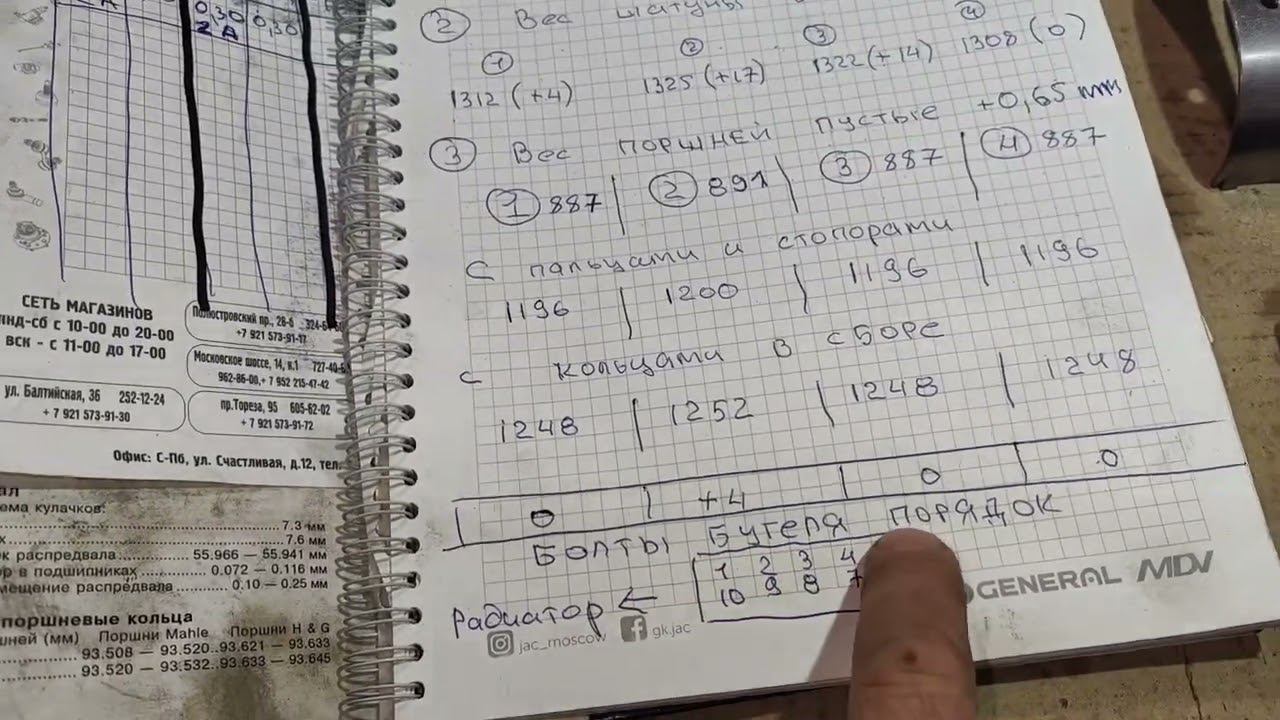 0,30 0,30
2 A
СЕТЬ МАГАЗИНОВ
пнд-сб с 10-00 до 20-00
вск - с 11-00 до 17-00
Полюстровский пр., 28-б
+7 921 573-91-17
Московское шоссе, 14, к.1 727-40-
962-86-00,+ 7 952 215-47-42
ул. Балтийская, 36 252-12-24
+ 7 921 573-91-30
пр.Тореза, 95 605-62-02
+ 7 921 573-91-72
Офис: С-Пб, ул. Счастливая, д.12, тел.
ема кулачков:
7.3 мм
7.6 мм
к распредвала 55.966 — 55.941 мм
ор в подшипниках 0.072 — 0.116 мм
мещение распредвала 0.10 — 0.25 мм
поршневые кольца
шней (мм) Поршни Mahle Поршни H & G
93.508 — 93.520..93.621 — 93.633
93.520 — 93.532..93.633 — 93.645
2 Вес шатуны
1 2 3 4
1312 (+4) 1325 (+17) 1322 (+14) 1308 (0)
3 Вес поршней пустые +0,65 mm
1 887 | 2 891 | 3 887 | 4 887
С пальцами и стопорами
1196 | 1200 | 1196 | 1196
с кольцами в сборе
1248 | 1252 | 1248 | 1248
0 | +4 | 0 | 0
Болты Бугеля порядок
1 2 3 4
10 9 8 7
Радиатор ←
jac_moscow gk.jac
GENERAL MDV